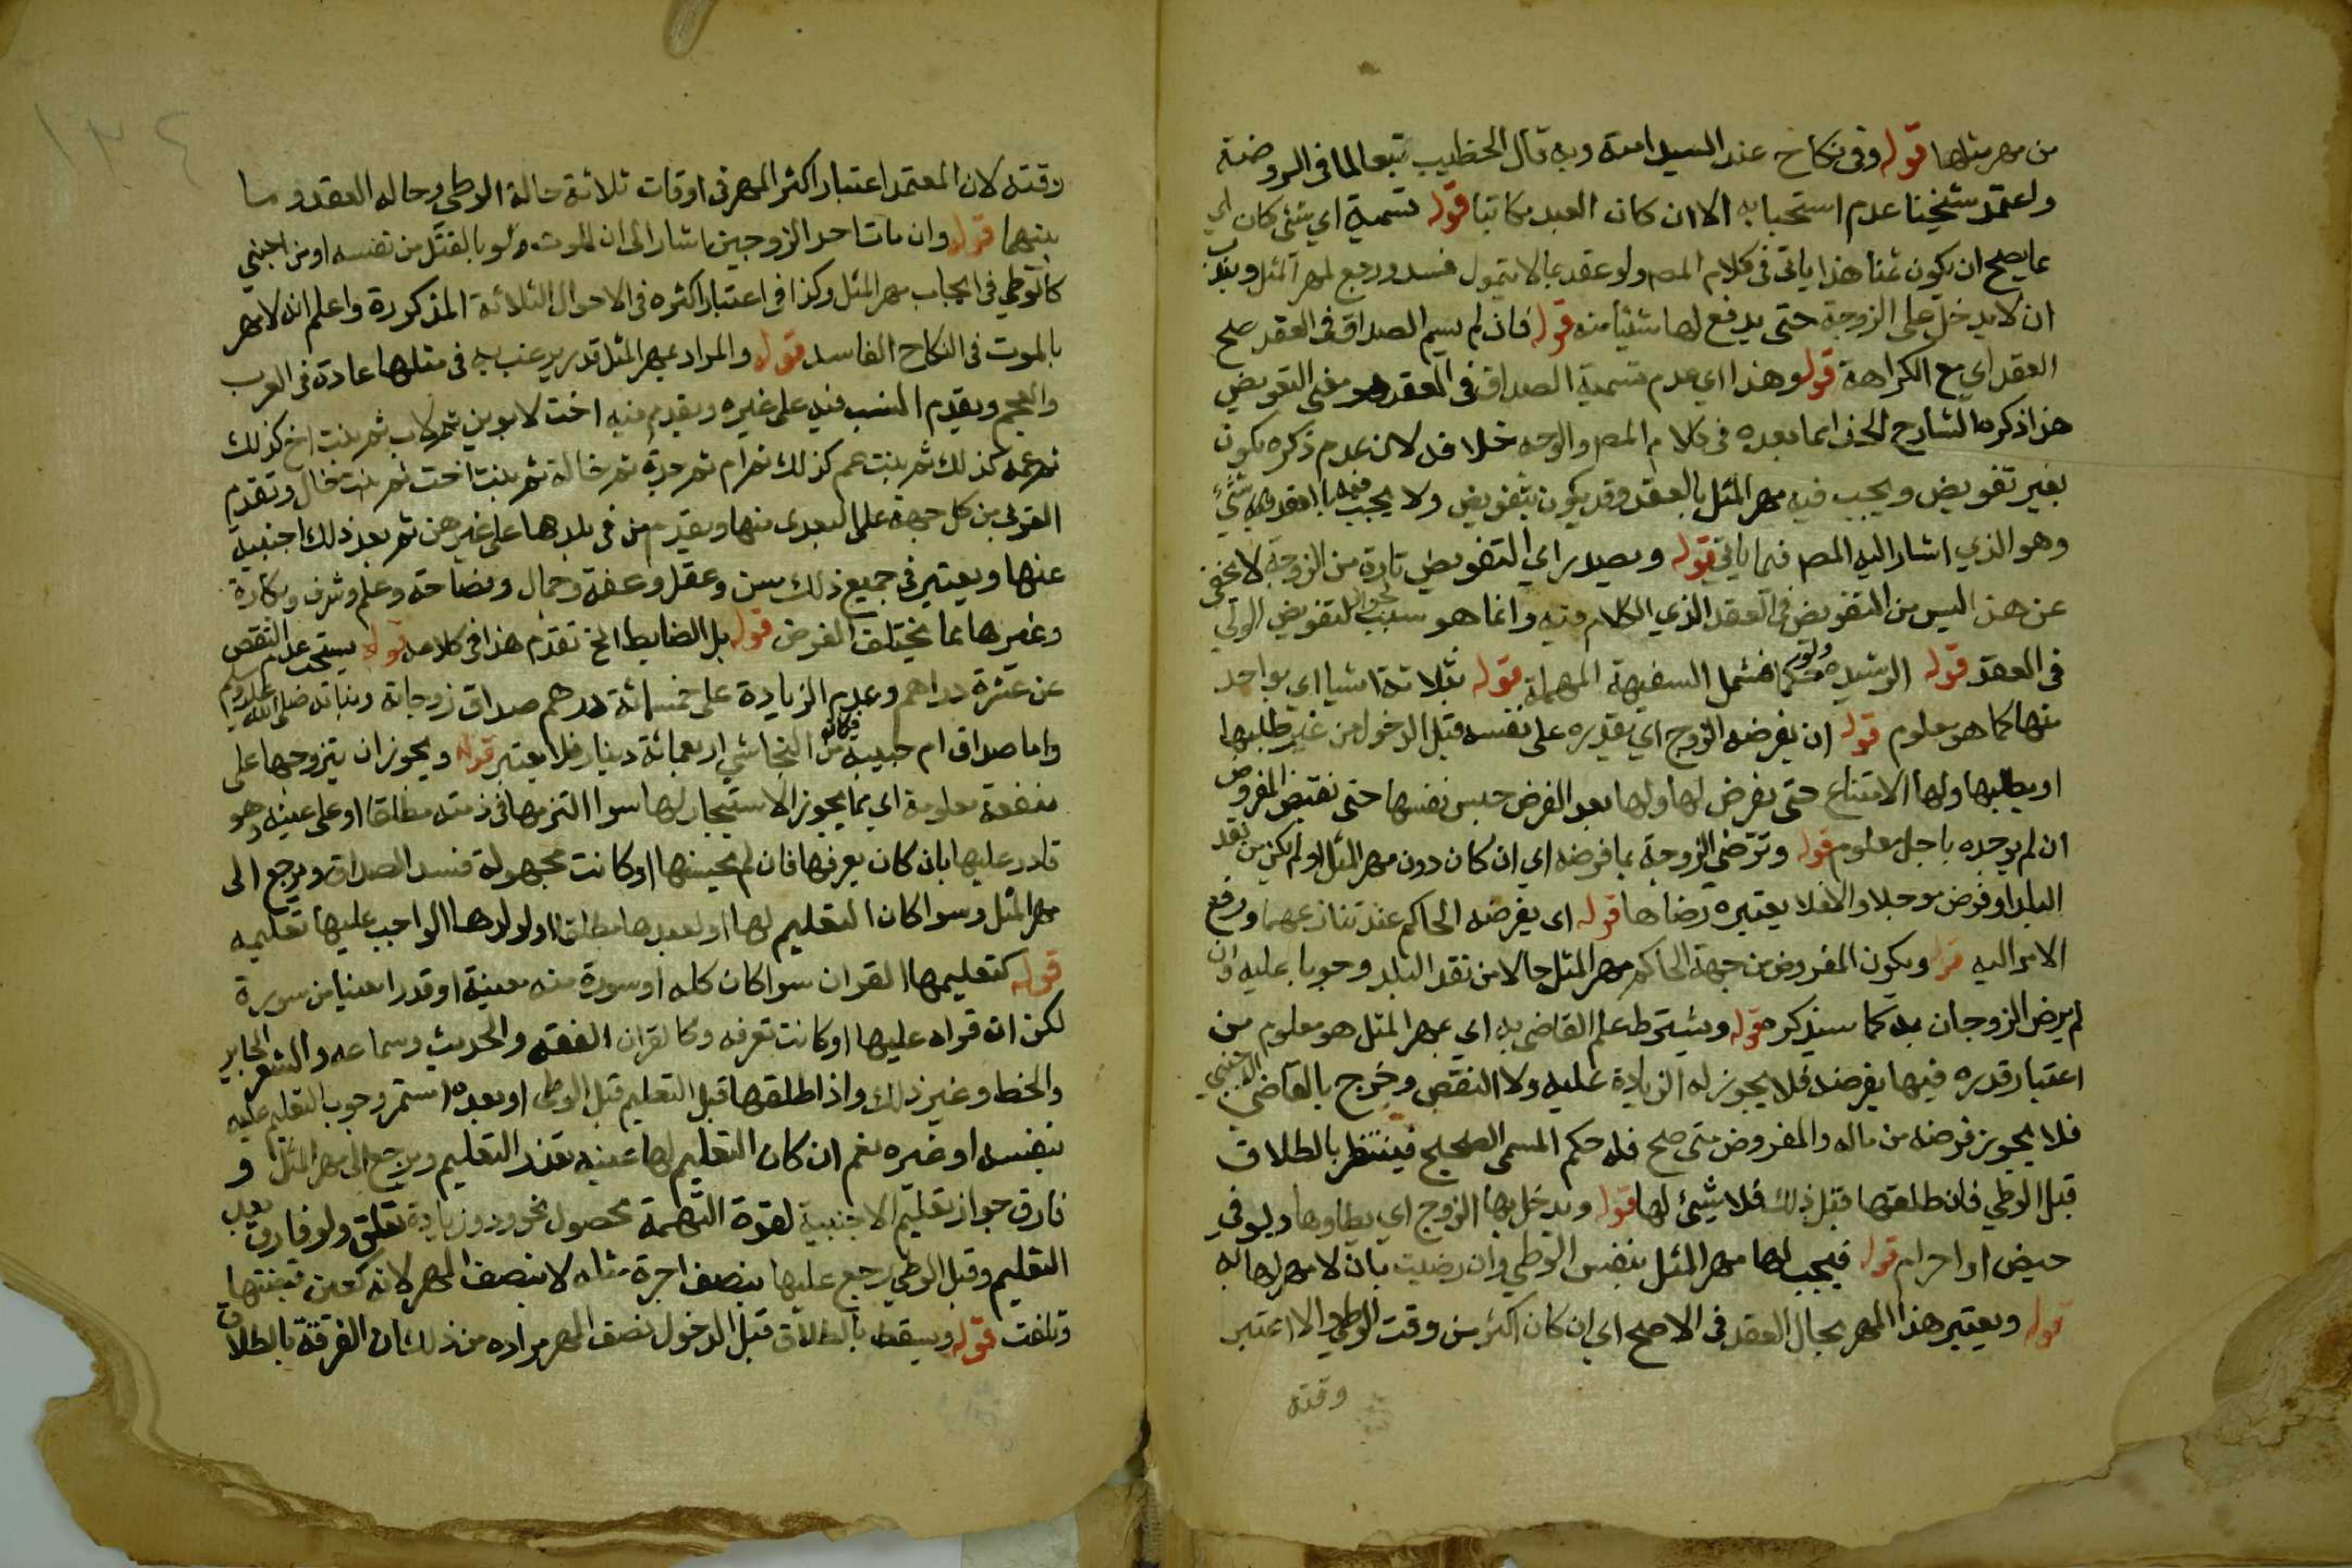 من مهر مثلها قوله وفي نكاح عند السيد امته وبه قال الخطيب تبعا لما في الروضة
واعتمد شيخنا عدم استحبابه الا ان كان العبد مكاتبا قوله تسمية اي شئ كان اي
مما يصح ان يكون ثمنا هذا ياتي في كلام المص ولو عقد بما لا يتمول فسد ورجع لمهر المثل ويندب
ان لا يدخل على الزوجة حتى يدفع لها شيئا منه قوله فان لم يسم الصداق في العقد صح
العقد اي مع الكراهة قوله وهذا اي عدم تسمية الصداق في العقد هو معنى التفويض
هذا ذكره الشارح اخذا مما بعده في كلام المص والوجه خلافه لان عدم ذكره يكون
بغير تفويض ويجب فيه مهر المثل بالعقد وقد يكون بتفويض ولا يجب فيها بالعقد فيه شئ
وهو الذي اشار اليه المص فيما ياتي قوله ويصدر اي التفويض تارة من الزوجة لا يخفى
عن هذا ليس من التفويض في العقد الذي الكلام فيه وانما هو سبب لجواز لتفويض الولي
في العقد قوله الرشيدة ولو حكما فشمل السفيهة المهملة قوله بثلاثة اشيا اي بواحد
منها كما هو معلوم قوله ان يفرضه الزوج اي يقدره على نفسه قبل الدخول من غير طلبها
او بطلبها ولها الامتناع حتى يفرض لها ولها بعد الفرض حبس نفسها حتى تقبض المفروض
ان لم يوجده باجل معلوم قوله وترضى الزوجة بما فرضه اي ان كان دون مهر المثل او لم يكن من نقد
البلد او فرض موجلا والا فلا يعتبر رضاها قوله اى يفرضه الحاكم عند تنازعهما ورفع
الامر اليه قوله ويكون المفروض من جهة الحاكم مهر المثل حالا من نقد البلد وجوبا عليه وان
لم يرض الزوجان به كما سيذكره قوله ويشترط علم القاضي به اي بمهر المثل هو معلوم من
اعتبار قدره فيها يفرضه فلا يجوز له الزيادة عليه ولا النقص وخرج بالقاضي الاجنبي
فلا يجوز فرضه من ماله والمفروض متى صح فله حكم المسمى الصحيح فينشطر بالطلاق
قبل الوطي فان طلقها قبل ذلك فلا شيئ لها قوله ويدخل بها الزوج اي يطاوها ولو في
حيض او احرام قوله فيجب لها مهر المثل بنفس الوطي وان رضيت بان لا مهر لها له
قوله ويعتبر هذا المهر بحال العقد في الاصح اي ان كان اكثر من وقت الوطي والا اعتبر
وقته
١٣٤
وقته لان المعتمد اعتبار اكثر المهر في اوقات ثلاثة حالة الوطي وحاله العقد وما
بينهما قوله وان مات احد الزوجين اشار الى ان الموت ولو بالقتل من نفسه او من اجنبي
كالوطي في ايجاب مهر المثل وكذا في اعتبار اكثره في الاحوال الثلاثة المذكورة واعلم انه لا مهر
بالموت في النكاح الفاسد قوله والمراد بمهر المثل قدر يرغب به في مثلها عادة في العرب
والعجم ويقدم النسب فيه على غيره ويقدم فيه اخت لابوين ثم لاب ثم بنت اخ كذلك
ثم عمه كذلك ثم بنت عم كذلك ثم ام ثم جدة ثم خالة ثم بنت اخت ثم بنت خال وتقدم
القربى من كل جهة على البعدى منها ويقدم من في بلدها على غيرهن ثم بعد ذلك اجنبية
عنها ويعتبر في جميع ذلك سن وعقل وعفة وجمال وفصاحة وعلم وشرف وبكارة
وغيرها مما يختلف الغرض قوله بل الضابط الخ تقدم هذا في كلامه قوله يستحب عدم النقص
عن عشرة دراهم وعدم الزيادة على خمسمائة درهم صداق زوجاته وبناته صلى الله عليه وسلم
واما صداق ام حبيبة فكانه من النجاشي اربعمائة دينار فلا يعتبر قوله ويجوز ان يتزوجها على
منفعة معلومة اي بما يجوز الاستيجار لها سوا التزمها في ذمته مطلقا او على عينه وهو
قادر عليها بان كان يعرفها فان لم يحسنها او كانت مجهولة فسد الصداق ويرجع الى
مهر المثل وسوا كان التعليم لها او لعبدها مطلقا او لولدها الواجب عليها تعليمه
قوله كتعليمها القران سوا كان كله او سورة منه معينة او قدرا معينا من سورة
لكن ان قراه عليها او كانت تعرفه وكالقران الفقه والحديث وسماعه والشعر الجايز
والخط وغير ذلك واذا طلقها قبل التعليم قبل الوطي او بعده استمر وجوب التعليم عليه
بنفسه او غيره نعم ان كان التعليم لها عينه تعذر التعليم ويرجع الى مهر المثل و
فارق جواز تعليم الاجنبية لقوة التهمة بحصول نحو ود وزيادة تعلق ولو فارق بعد
التعليم وقبل الوطي رجع عليها بنصف اجرة مثله لا بنصف المهر لانه كعين قبضتها
وتلفت قوله ويسقط بالطلاق قبل الدخول نصف المهر مراده من ذلك ان الفرقة بالطلاق